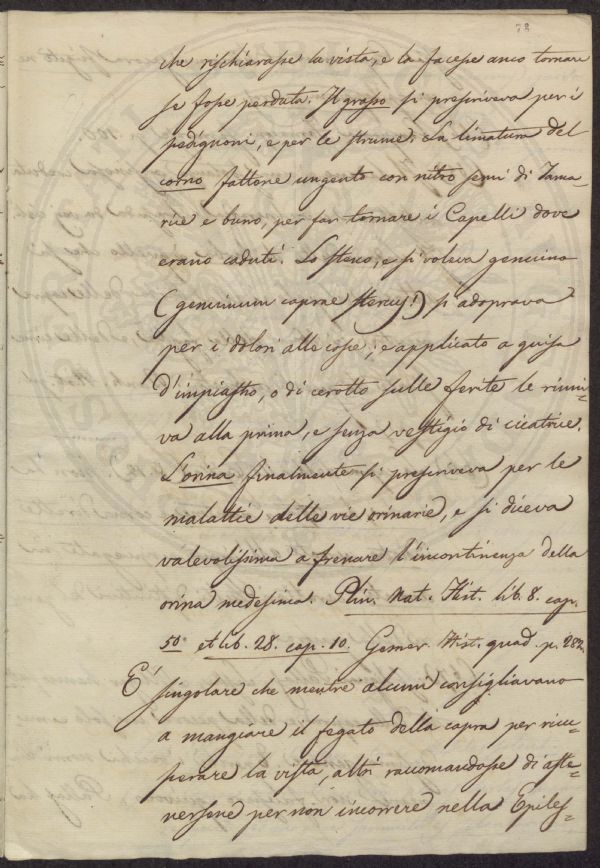 73
che rischiarasse la vista, e la facesse anco tornare
se fosse perduta. Il grasso si prescriveva per i
pedignoni, e per le strume. La limatura del
corno fattone ungento con nitro semi di Tama-
rice e buro, per far tornare i Capelli dove
erano caduti. Lo sterco, e si voleva genuino
(genuinum caprae stercus!) si adoprava
per i dolori alle cosse; e applicato a guisa
d'impiastro, o di cerotto sulle ferite le riuni-
va alla prima, e senza vestigio di cicatrice.
L'orina finalmente si prescriveva per le
malattie delle vie orinarie, e si diceva
valevolissima a frenare l'incontinenza della
orina medesima. Plin. Nat. Hist. lib. 8. cap.
50. et lib. 28. cap. 10. Gesner. Hist. quad. p. 282.
E' singolare che mentre alcuni consigliavano
a mangiare il fegato della capra per ricu-
perare la vista, altri raccomandasse di aste-
nersene per non incorrere nella Epiles-